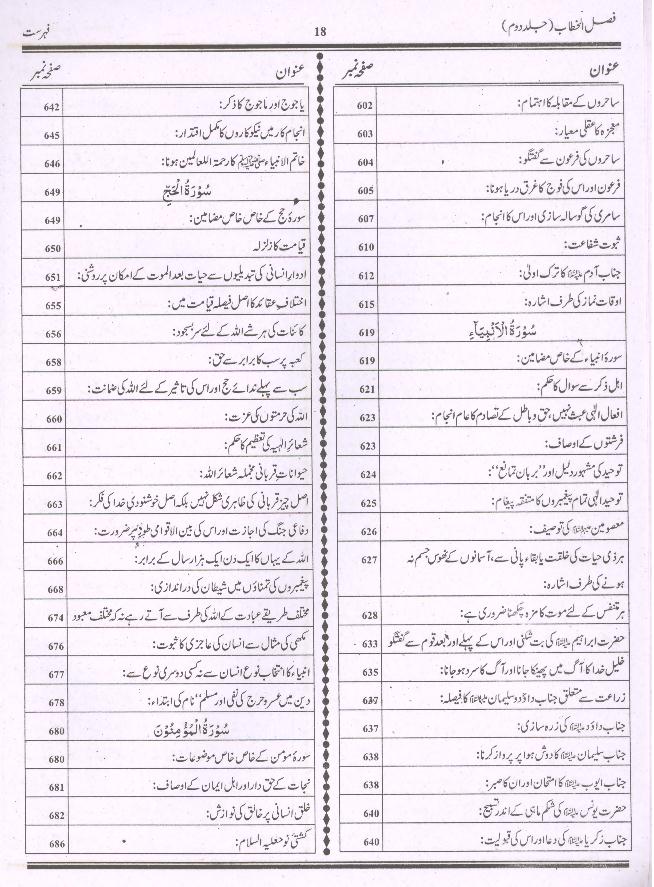 فصل الخطاب (جلد دوم)
18
فہرست
عنوان
صفحہ نمبر
ساحروں کے مقابلہ کا اہتمام:
602
معجزہ کا عقلی معیار:
603
ساحروں کی فرعون سے گفتگو:
604
فرعون اور اس کی فوج کا غرق دریا ہونا:
605
سامری کی گوسالہ سازی اور اس کا انجام:
607
ثبوت شفاعت:
610
جناب آدم علیہ السلام کا ترک اولیٰ:
612
اوقات نماز کی طرف اشارہ:
615
سُوْرَةُ الْاَنْبِيَآءِ
619
سورۂ انبیاء کے خاص مضامین:
619
اہل ذکر سے سوال کا حکم:
621
افعال الٰہی عبث نہیں، حق و باطل کے تصادم کا عام انجام:
623
فرشتوں کے اوصاف:
623
توحید کی مشہور دلیل اور ”برہان تمانع“:
624
توحید الٰہی تمام پیغمبروں کا متفقہ پیغام:
625
معصومین علیہم السلام کی توصیف:
626
ہر ذی حیات کی خلقت یا بقاء پانی سے، آسمانوں کے ٹھوس جسم نہ
627
ہونے کی طرف اشارہ:
ہر متنفس کے لئے موت کا مزہ چکھنا ضروری ہے:
628
حضرت ابراہیم علیہ السلام کی بت شکنی اور اس کے پہلے اور بعد قوم سے گفتگو
633
خلیل خدا کا آگ میں پھینکا جانا اور آگ کا سرد ہو جانا:
635
زراعت سے متعلق جناب داؤد و سلیمان علیہما السلام کا فیصلہ:
637
جناب داؤد علیہ السلام کی زرہ سازی:
637
جناب سلیمان علیہ السلام کا دوش ہوا پر پرواز کرنا:
638
جناب ایوب علیہ السلام کا امتحان اور ان کا صبر:
638
حضرت یونس علیہ السلام کی شکم ماہی کے اندر تسبیح:
640
جناب زکریا علیہ السلام کی دعا اور اس کی قبولیت:
640
عنوان
صفحہ نمبر
یاجوج اور ماجوج کا ذکر:
642
انجام کار میں نیکوکاروں کا مکمل اقتدار:
645
خاتم الانبیاء صلی اللہ علیہ وسلم کا رحمۃ اللعالمین ہونا:
646
سُوْرَةُ الْحَجِّ
649
سورۂ حج کے خاص خاص مضامین:
649
قیامت کا زلزلہ
650
ادوار انسانی کی تبدیلیوں سے حیات بعد الموت کے امکان پر روشنی:
651
اختلاف عقائد کا اصل فیصلہ قیامت میں:
655
کائنات کی ہر شے اللہ کے لئے سر بسجود:
656
کعبہ پر سب کا برابر سے حق:
658
سب سے پہلے ندائے حج اور اس کی تاثیر کے لئے اللہ کی ضمانت:
659
اللہ کی حرمتوں کی عزت:
660
شعائر الٰہیہ کی تعظیم کا حکم:
661
حیوانات قربانی منجملہ شعائر اللہ:
662
اصل چیز قربانی کی ظاہری شکل نہیں بلکہ اصل خوشنودی خدا کی فکر:
663
دفاعی جنگ کی اجازت اور اس کی بین الاقوامی طور پر ضرورت:
664
اللہ کے یہاں کا ایک دن ایک ہزار سال کے برابر:
666
پیغمبروں کی تمناؤں میں شیطان کی دراندازی:
668
مختلف طریقے عبادت کے اللہ کی طرف سے آتے رہے نہ کہ مختلف معبود
674
مکھی کی مثال سے انسان کی عاجزی کا ثبوت:
676
انبیاء کا انتخاب نوع انسان سے نہ کسی دوسری نوع سے:
677
دین میں عسر و حرج کی نفی اور مسلم“ نام کی ابتداء:
678
سُوْرَةُ الْمُؤْمِنُوْنَ
680
سورۂ مومن کے خاص خاص موضوعات:
680
نجات کے حق دار اور اہل ایمان کے اوصاف:
681
خلق انسانی پر خالق کی نوازش:
682
کشتی نوح علیہ السلام:
686